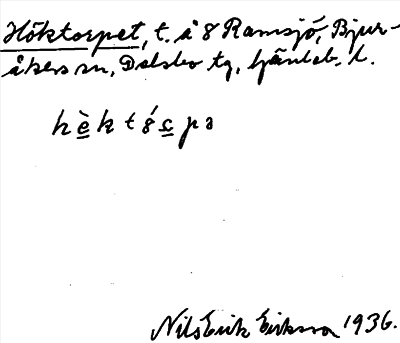 Höktorpet, t. å 8 Ramsjö, Bjur-
åkers sn, Delsbo tg, Gävleb. l.
Nils Erik Eriksson 1936.